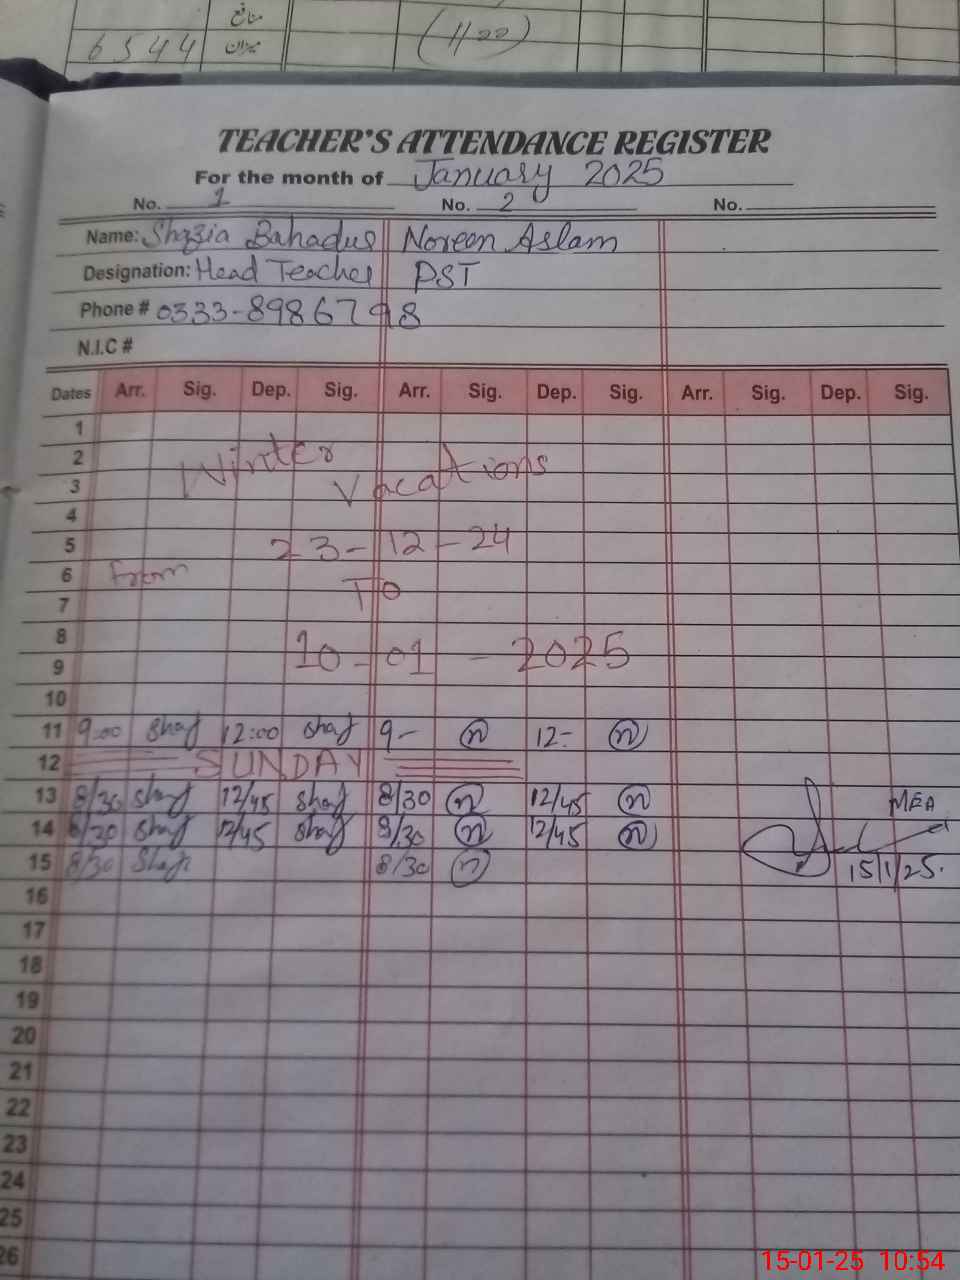 متاثع
6544 میزان (1100)
TEACHER'S ATTENDANCE REGISTER
For the month of January 2025
No. 1 No. 2 No.
Name: Shazia Bahadur Noreen Aslam
Designation: Head Teacher PST
Phone # 0333-8986798
N.I.C #
Dates Arr. Sig. Dep. Sig. Arr. Sig. Dep. Sig. Arr. Sig. Dep. Sig.
1
2 Winter
3 Vacations
4
5 23-12-24
6 From
7 To
8
9 10-01-2025
10
11 9:00 Shaf 12:00 Shaf 9- n 12- n
12 SUNDAY
13 8/30 Shaf 12/45 Shaf 8/30 n 12/45 n MEA
14 8/30 Shaf 12/45 Shaf 8/30 n 12/45 n
15 8/30 Shaf 8/30 n 15/1/25.
16
17
18
19
20
21
22
23
24
25
26
15-01-25 10:54